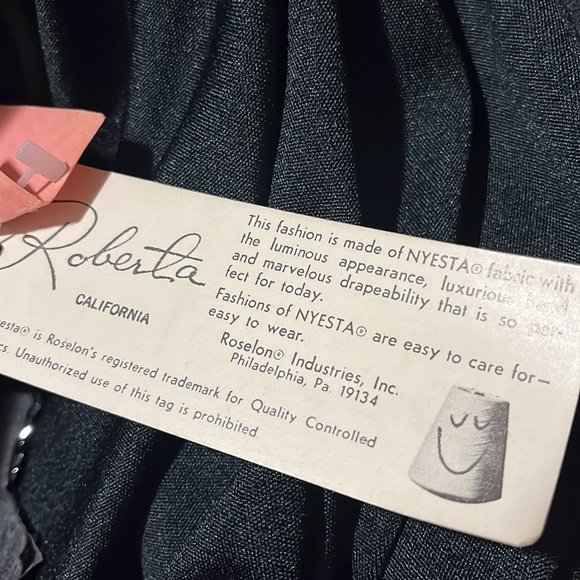 Roberta
CALIFORNIA
This fashion is made of NYESTA® fabric with
the luminous appearance, luxurious hand
and marvelous drapeability that is so per-
fect for today.
Fashions of NYESTA® are easy to care for—
easy to wear.
Roselon® Industries, Inc.
Philadelphia, Pa. 19134
esta® is Roselon's registered trademark for Quality Controlled
cs. Unauthorized use of this tag is prohibited.